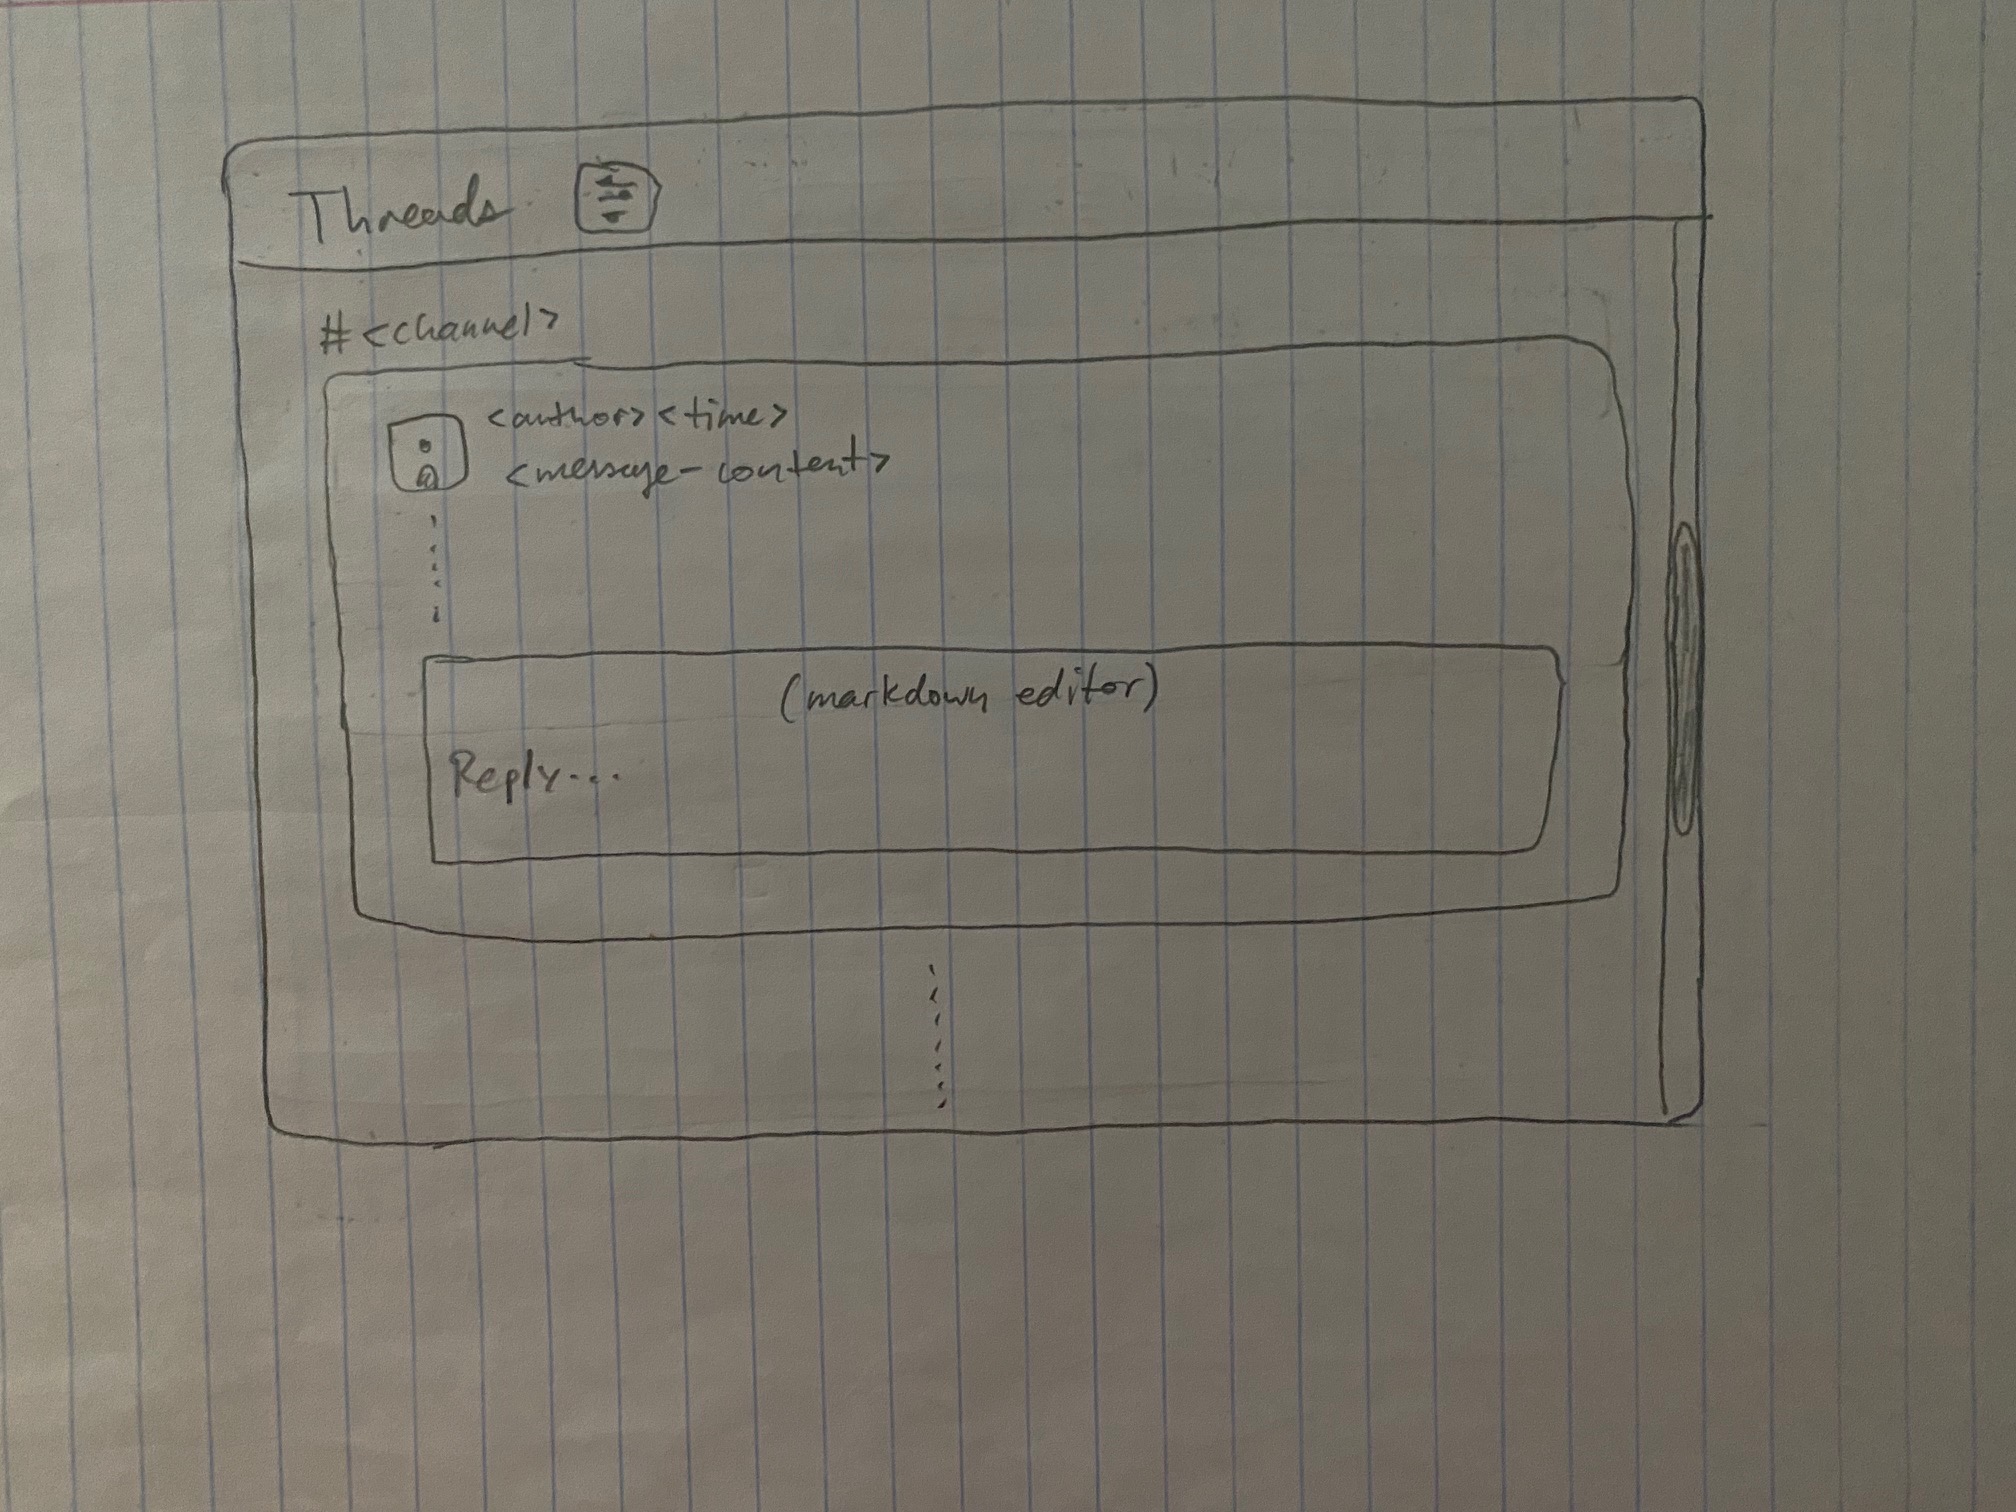 Threads
#<channel>
<author> <time>
<message-content>
(markdown editor)
Reply...